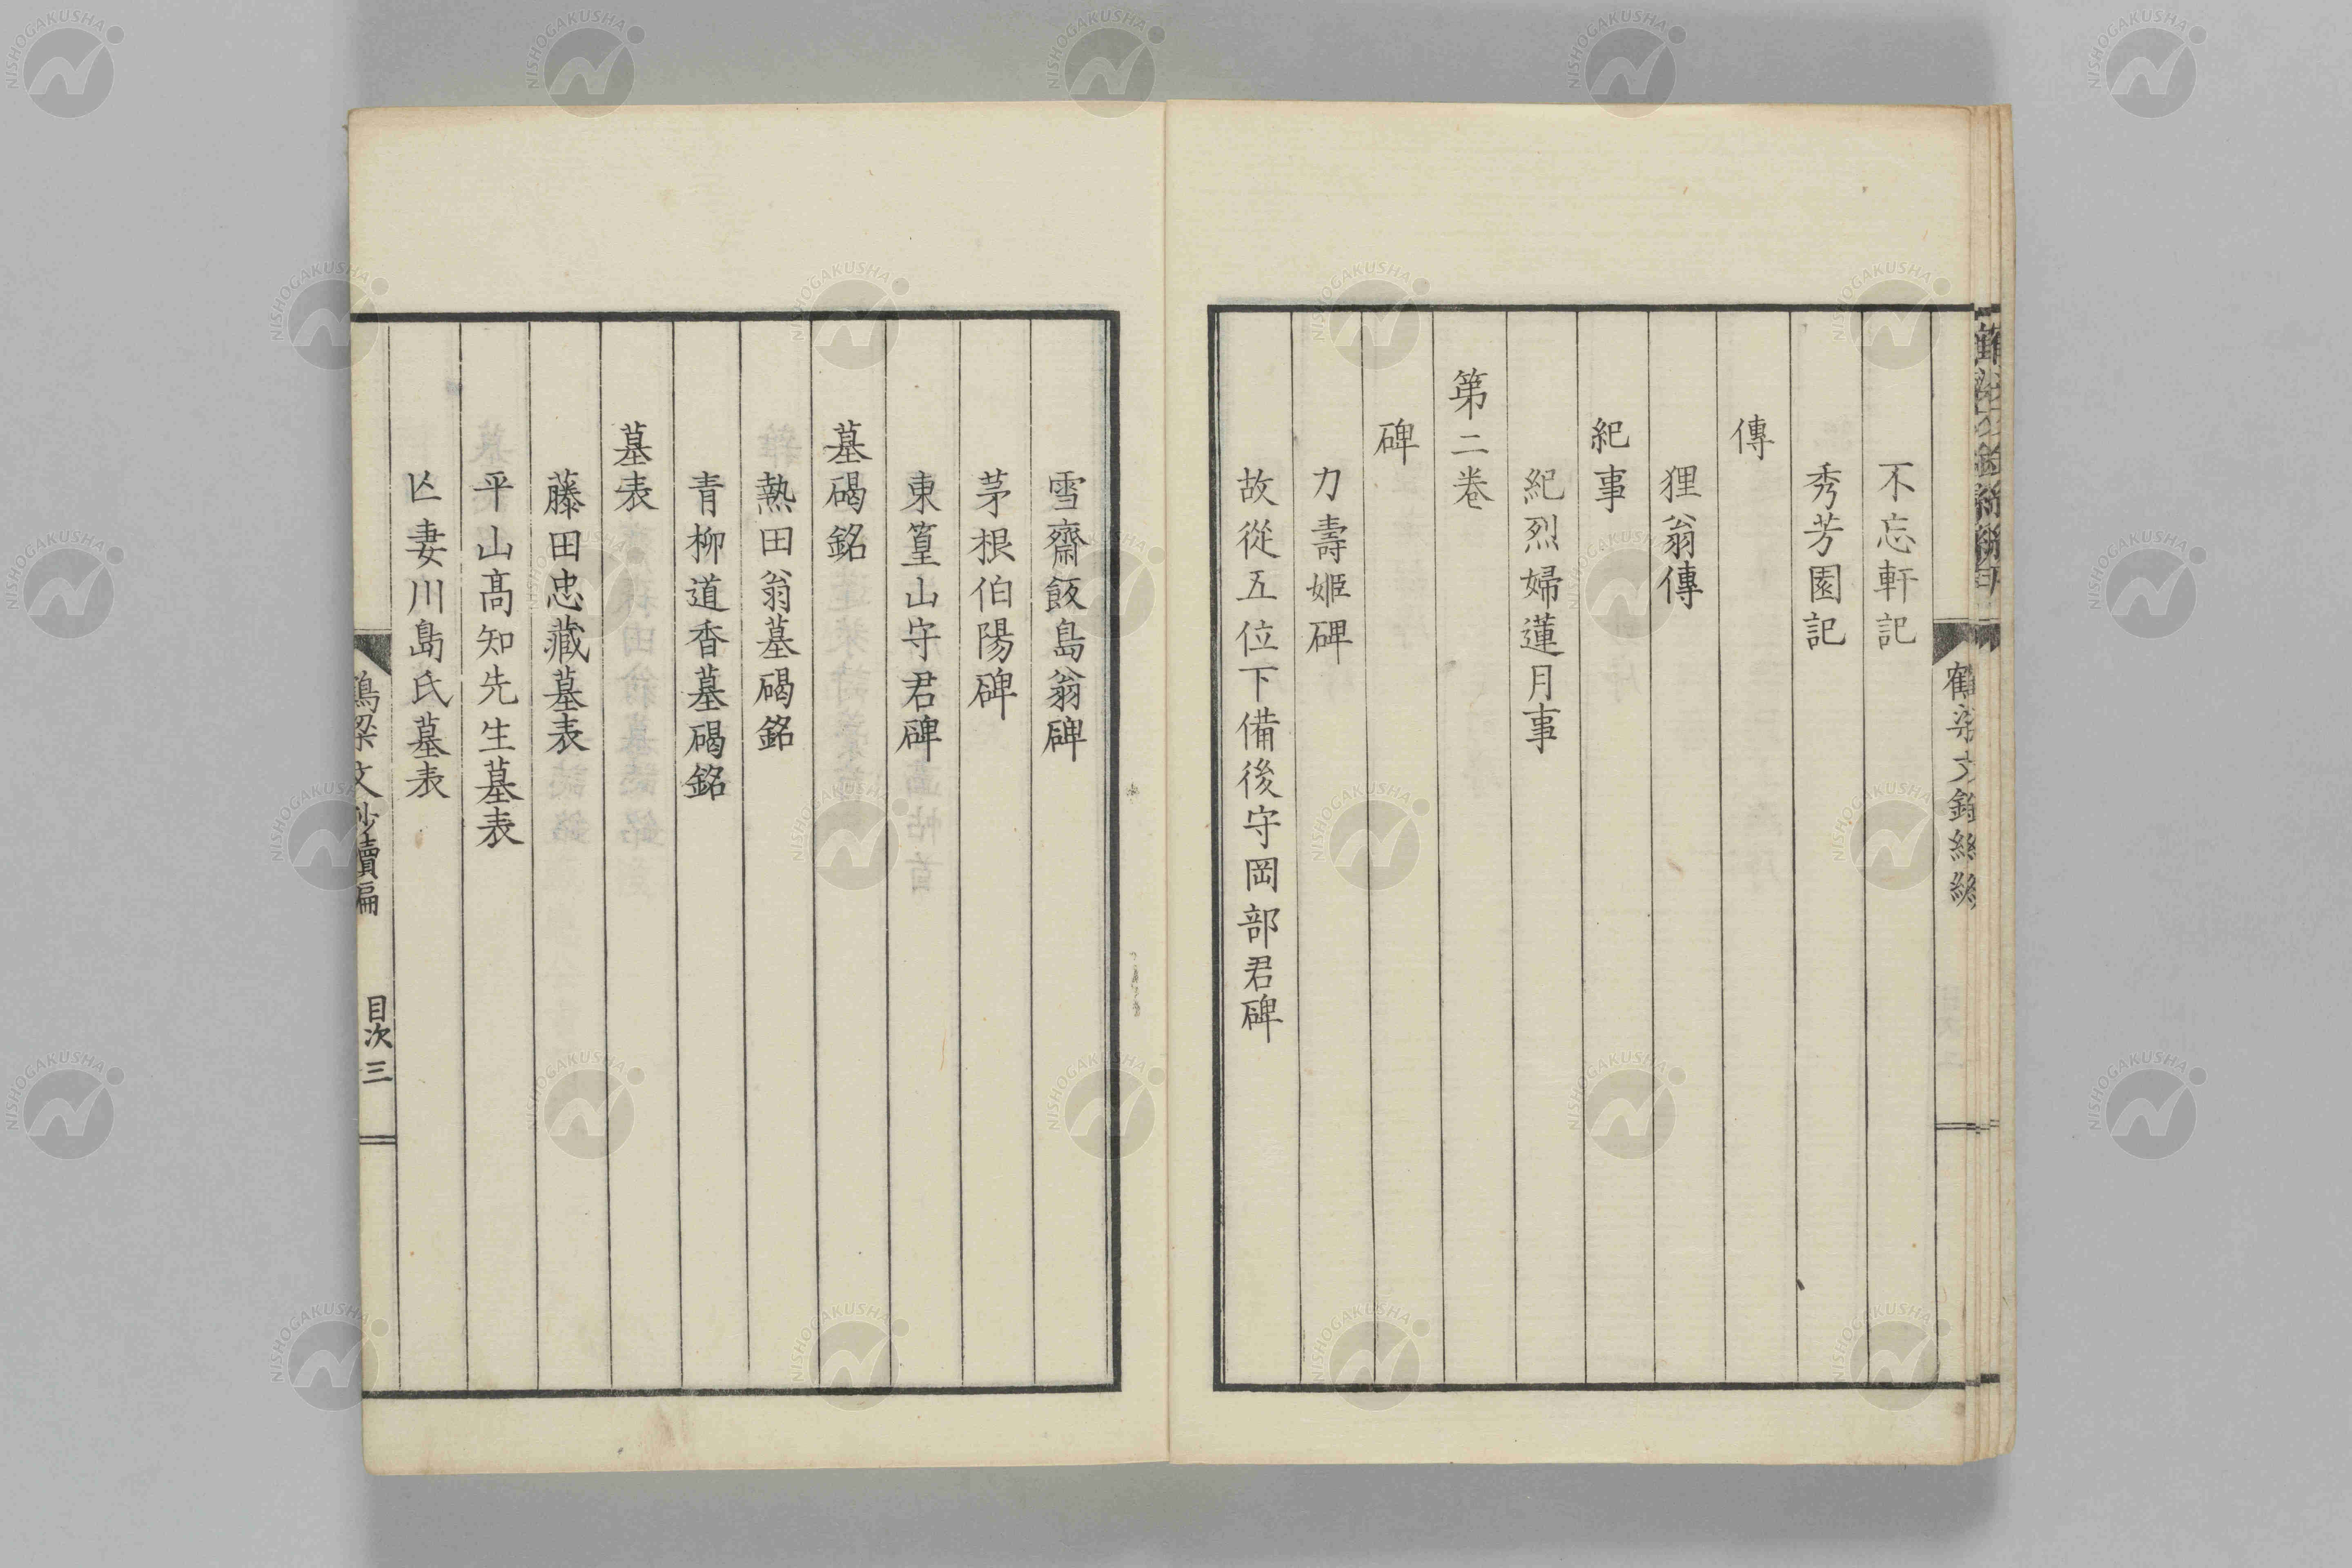 不忘軒記
秀芳園記
傳
狸翁傳
紀事
紀烈婦蓮月事
第二卷
碑
力壽姬碑
故從五位下備後守岡部君碑
雪齋飯島翁碑
茅根伯陽碑
東篁山守君碑
墓碣銘
熱田翁墓碣銘
青柳道香墓碣銘
墓表
藤田忠藏墓表
平山髙知先生墓表
亾妻川島氏墓表
鶴梁文鈔續編 目次 三
NISHOGAKUSHA